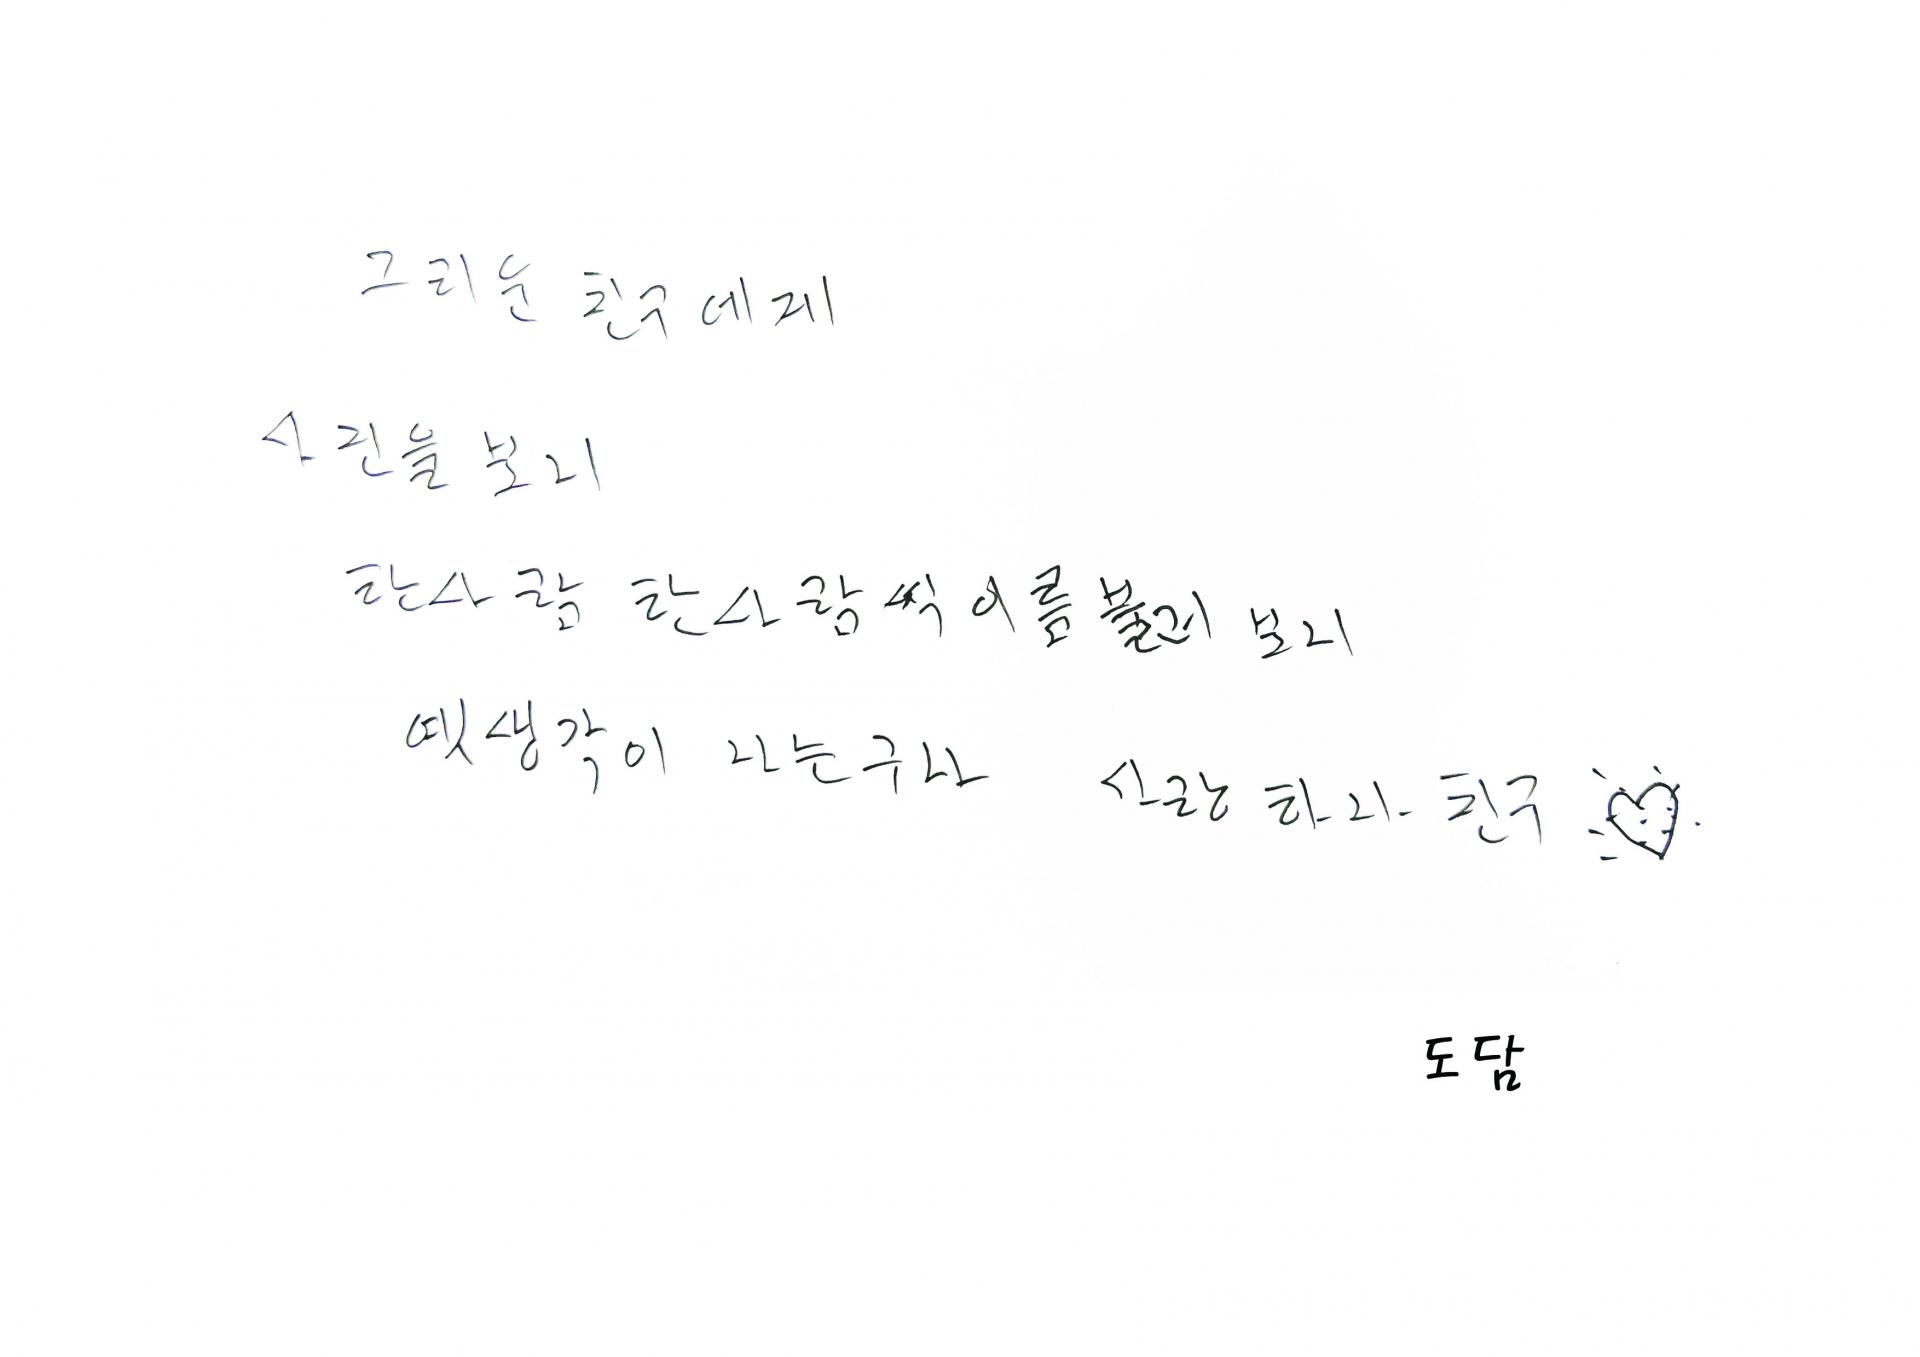 그리운 친구에게
사진을 보니
한사람 한사람씩 이름불러 보니
옛생각이 나는구나 친구 ♡
도담